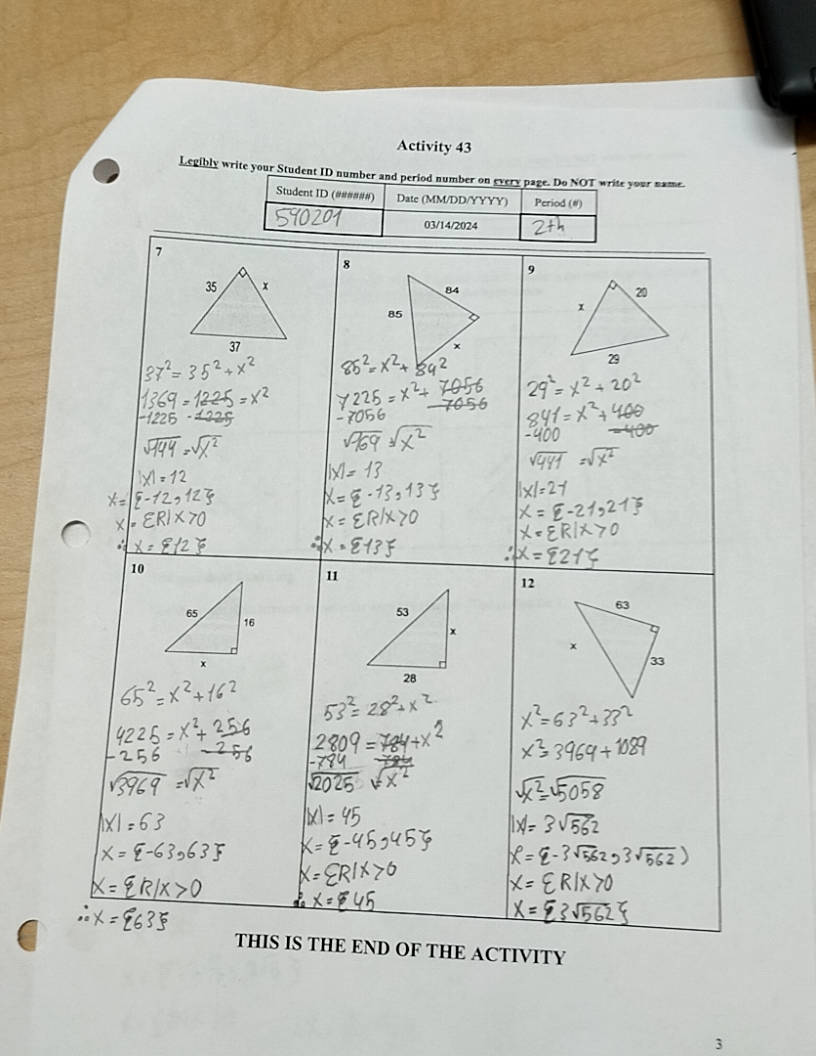 Activity 43
Legibly write your Student ID number and period number on every page. Do NOT write your name.
Student ID (######) Date (MM/DD/YYYY) Period (#)
590201 03/14/2024 2th
7
35 x
37
37² = 35² + x²
1369 = 1225 = x²
-1225 -1225
√144 = √x²
|x| = 12
x = {-12,12}
x = ER/x>0
∴ x = {12}
8
84
85
x
85² = x² + 84²
7225 = x² + 7056
-7056 -7056
√169 = √x²
|x| = 13
x = {-13,13}
x = ER/x>0
∴ x = {13}
9
x 20
29
29² = x² + 20²
841 = x² + 400
-400 -400
√441 = √x²
|x| = 21
x = {-21,21}
x = ER/x>0
∴ x = {21}
10
65 16
x
65² = x² + 16²
4225 = x² + 256
-256 -256
√3969 = √x²
|x| = 63
x = {-63,63}
x = ER/x>0
∴ x = {63}
11
53 x
28
53² = 28² + x²
2809 = 784 + x²
-784 784
√2025 √x²
|x| = 45
x = {-45,45}
x = ER/x>0
∴ x = {45
12
63
x
33
x² = 63² + 33²
x² = 3969 + 1089
√x² = √5058
|x| = 3√562
x = {-3√562, 3√562)
x = ER/x>0
x = {3√562}
THIS IS THE END OF THE ACTIVITY
3